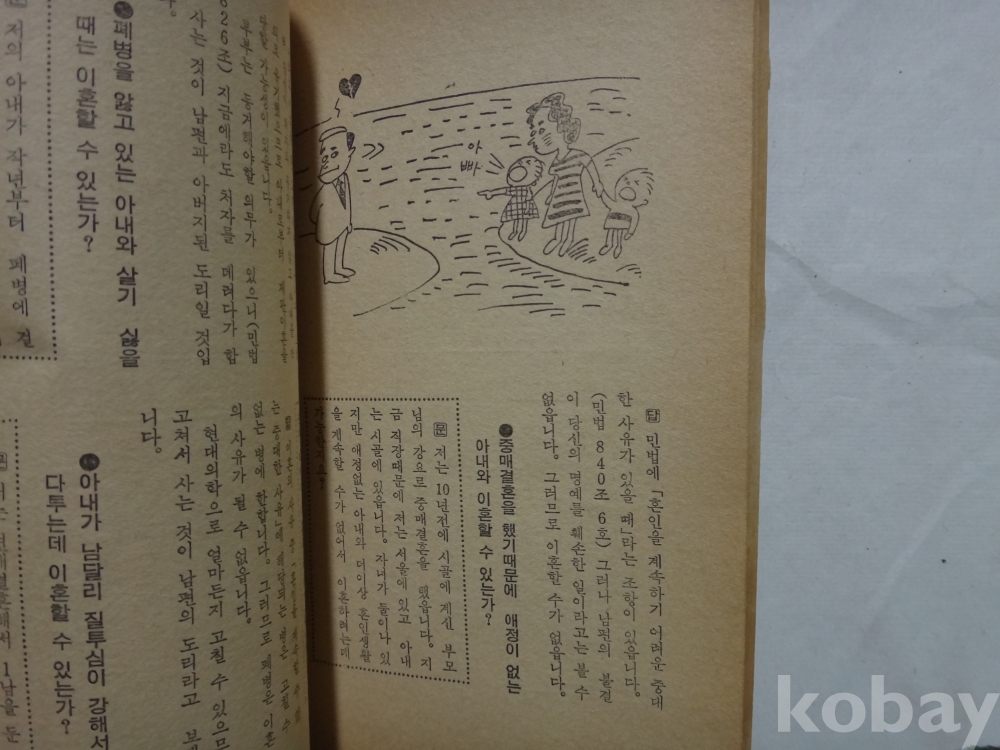 아빠
答 민법에 「혼인을 계속하기 어려운 중대
한 사유가 있을 때」라는 조항이 있읍니다.
(민법 840조 6호) 그러나 남편의 불결
이 당신의 명예를 훼손한 일이라고는 볼 수
없읍니다. 그러므로 이혼할 수가 없읍니다.
●중매결혼을 했기때문에 애정이 없는
아내와 이혼할 수 있는가?
問 저는 10년전에 시골에 계신 부모
님의 강요로 중매결혼을 했읍니다. 지
금 직장때문에 저는 서울에 있고 아내
는 시골에 있읍니다. 자녀가 둘이나 있
지만 애정없는 아내와 더이상 혼인생활
을 계속할 수가 없어서 이혼하려는데
가능한지요?
부부는 동거해야할 의무가 있으니(민법
826조) 지금에라도 처자를 데려다가 함
사는 것이 남편과 아버지된 도리일 것입
●폐병을 앓고 있는 아내와 살기 싫을
때는 이혼할 수 있는가?
저의 아내가 작년부터 폐병에 걸
는 중대한 사유」에 해당되는 병은 고칠 수
없는 병에 한합니다. 그러므로 폐병은 이혼
의 사유가 될 수 없읍니다.
현대의학으로 얼마든지 고칠 수 있으므
고쳐서 사는 것이 남편의 도리라고 보
니다.
●아내가 남달리 질투심이 강해서
다투는데 이혼할 수 있는가?
1남을 둔
kobay